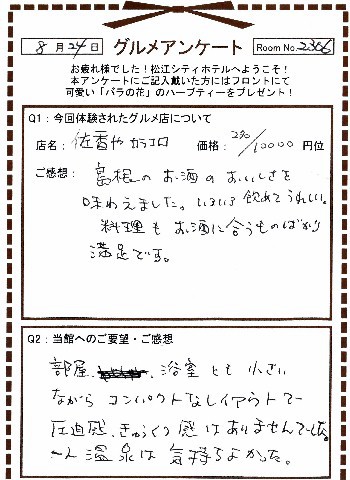 8月24日 グルメアンケート Room No. 2306
お疲れ様でした！松江シティホテルへようこそ！
本アンケートにご記入戴いた方にはフロントにて
可愛い「バラの花」のハーブティーをプレゼント！
Q1：今回体験されたグルメ店について
店名：佐香や カラコロ 価格：2名/10000 円位
ご感想：島根のお酒のおいしさを
味わえました。いろいろ飲めてうれしい。
料理もお酒に合うものばかり
満足です。
Q2：当館へのご要望・ご感想
部屋、浴室とも小さい
ながらコンパクトなレイアウトで
圧迫感、きゅうくつ感はありませんでした。
温泉は気持ちよかった。